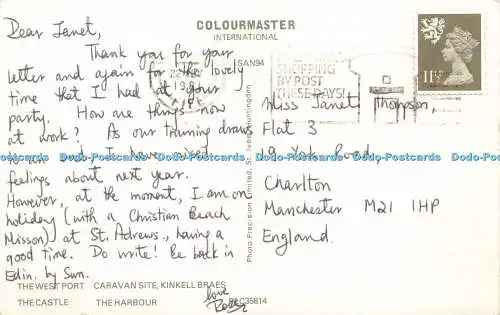 COLOURMASTER
INTERNATIONAL
Dear Janet,
Thank you for your
letter and again for the lovely
time that I had at your
party. How are things now
at work? As our training draws
to an end I have mixed
feelings about next year.
However, at the moment, I am on
holiday (with a Christian Beach
Misson) at St. Andrews, having a
good time. Do write! Be back in
Edin. by Sun.
love
SAN94
22
198
FIFE
SHOPPING
BY POST
THESE DAYS!
11½P
Miss Janet Thompson,
Flat 3
19 York Road,
Charlton
Manchester M21 1HP
England.
Photo Precision Limited, St. Ives, Huntingdon
THE WEST PORT CARAVAN SITE, KINKELL BRAES
THE CASTLE THE HARBOUR
PLC35814
Dodo-Postcards Dodo-Postcards Dodo-Postcards Dodo-Postcards Dodo-Postcards